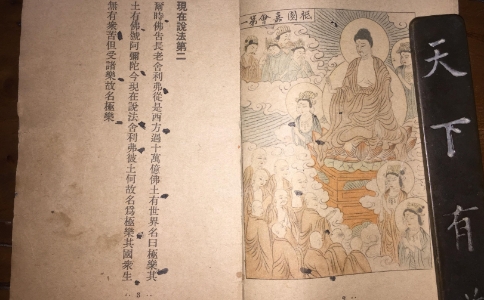 祇園嘉會第一
現在說法第二
爾時佛告長老舍利弗從是西方過十萬億佛土有世界名曰極樂其
土有佛號阿彌陀今現在說法舍利弗彼土何故名為極樂其國衆生
無有衆苦但受諸樂故名極樂
天下有